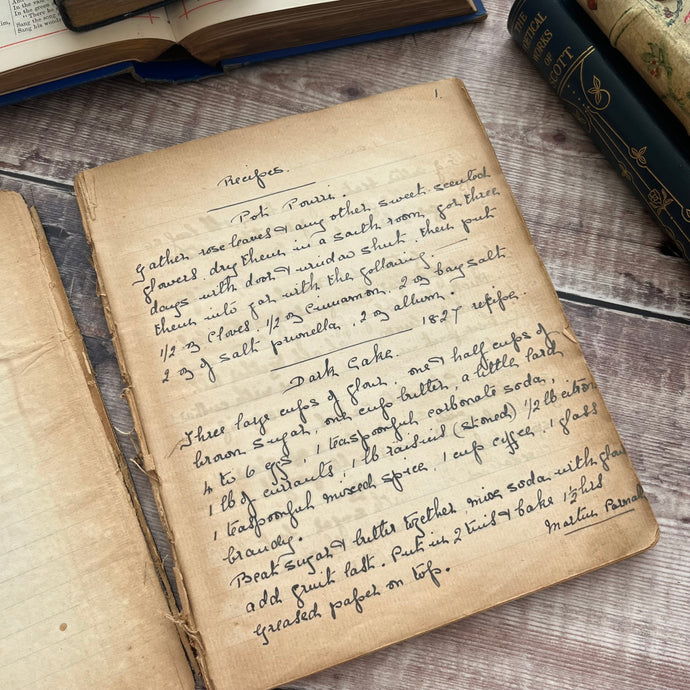 In the van
In the green
They
Sang the song
Sang his wonder
THE
POETICAL
WORKS
OF
SCOTT
1.
Recipes.
Pot Pourri.
Gather rose leaves & any other sweet scented
flowers. dry them in a south room for three
days with door & window shut. then put
them into jar with the following
1/2 oz Cloves. 1/2 oz Cinnamon. 2 oz bay salt
2 oz of salt prunella, 2 oz allum.
1827 recipe.
Dark Cake.
Three large cups of flour, one & half cups of
brown sugar, one cup butter, a little lard
4 to 6 eggs, 1 teaspoonful carbonate soda,
1 lb of currants, 1 lb raisins (stoned) 1/2 lb citron
1 teaspoonful mixed spice, 1 cup coffee, 1 glass
brandy.
Beat sugar & butter together mix soda with flour
add fruit last. Put in 2 tins & bake 1 1/2 hrs
Greased paper on top.